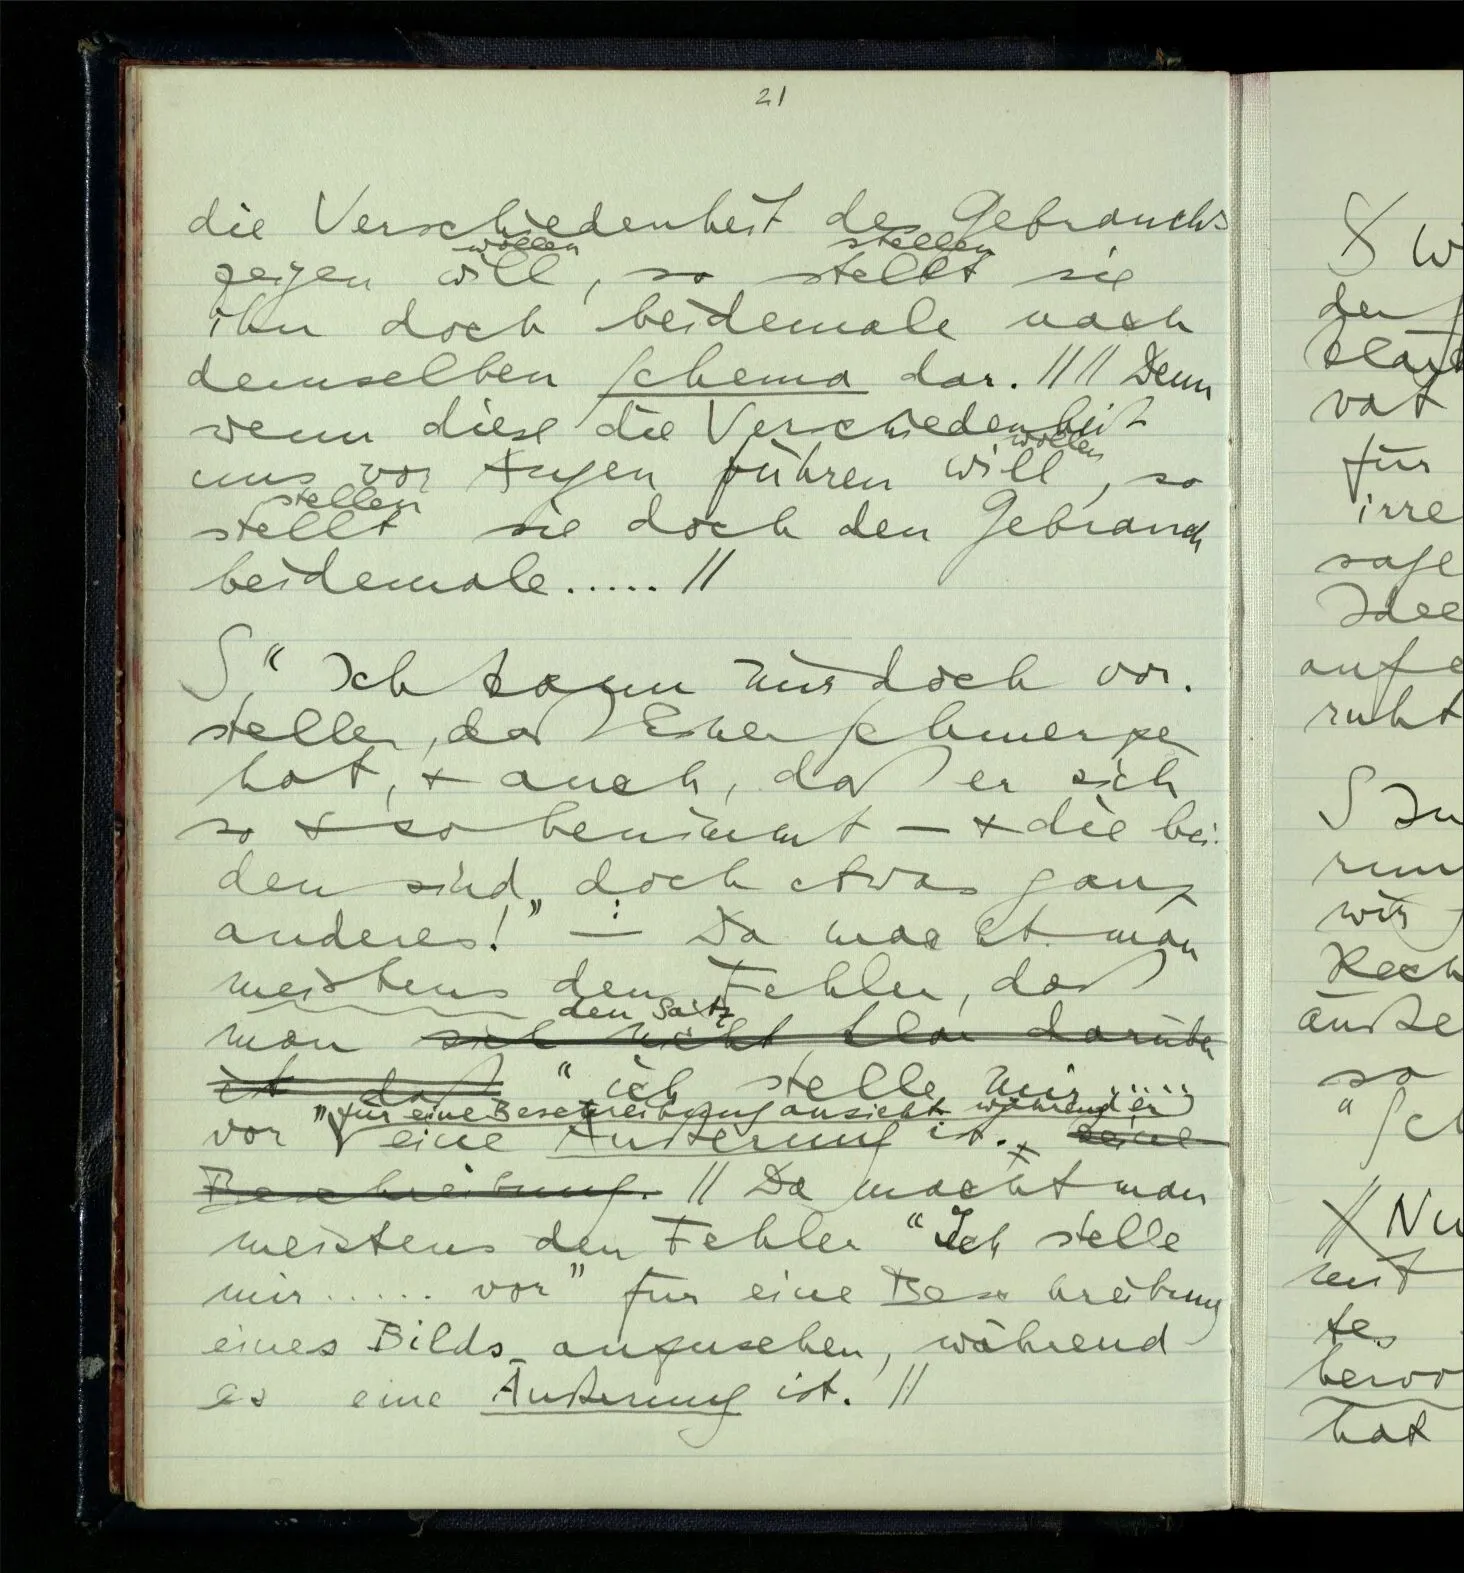 21
die Verschiedenheit des Gebrauchs
wollen stellen
zeigen will, so stellt sie
ihn doch beidemale nach
demselben Schema dar. //// Denn
wenn diese die Verschiedenheit
wollen
uns vor Augen führen will, so
stellen
stellt sie doch den Gebrauch
beidemale..... //
S “Ich kann mir doch vor-
stellen, daß Einer Schmerzen
hat, + auch, daß er sich
so + so benimmt — + die bei-
den sind doch etwas ganz
anderes!” — Da macht man
meistens den Fehler, daß
den Satz
man sich nicht klar darüber
ist daß “ich stelle mir.....
” für eine Beschreibung ansieht während er
vor eine Äußerung ist. + keine
Beschreibung. // Da macht man
meistens den Fehler “Ich stelle
mir..... vor” für eine Beschreibung
eines Bilds anzusehen, während
es eine Äußerung ist. //
S W
der
klar
vat
für
irre
sage
Idee
aufe
ruht
S In
run
wir
Rech
äuße
so
“Sch
// Nu
mit
tes
hervo
hat